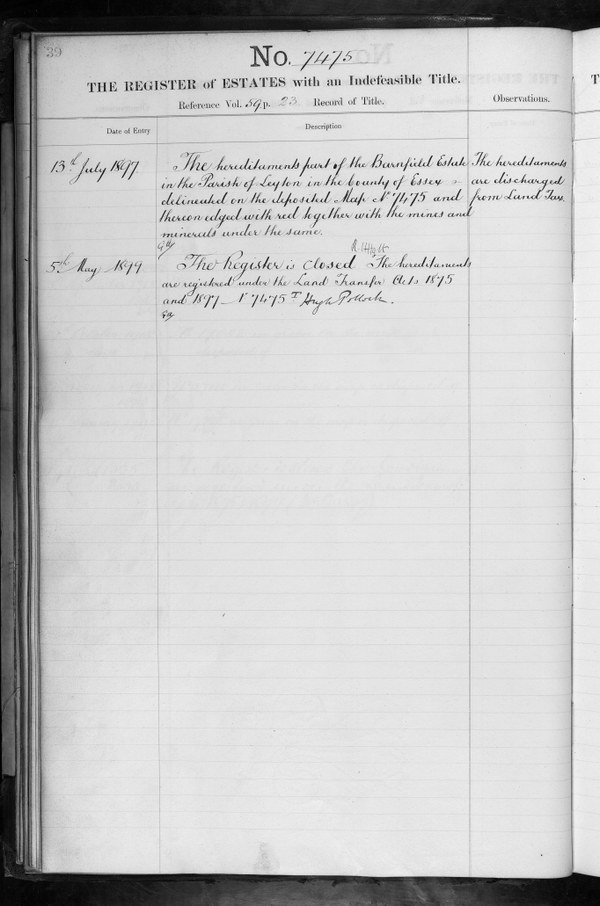 39
No. 7475
THE REGISTER of ESTATES with an Indefeasible Title.
Reference Vol. 59 p. 23. Record of Title.
Observations.
Date of Entry
Description
13th July 1897
The hereditaments part of the Barnfield Estate
in the Parish of Leyton in the County of Essex
delineated on the deposited Map No 7475 and
thereon edged with red together with the mines and
minerals under the same.
The hereditaments
are discharged
from Land Tax.
5th May 1899
The Register is closed The hereditaments
are registered under the Land Transfer Acts 1875
and 1897 — No 7475 T Hugh Pollock.